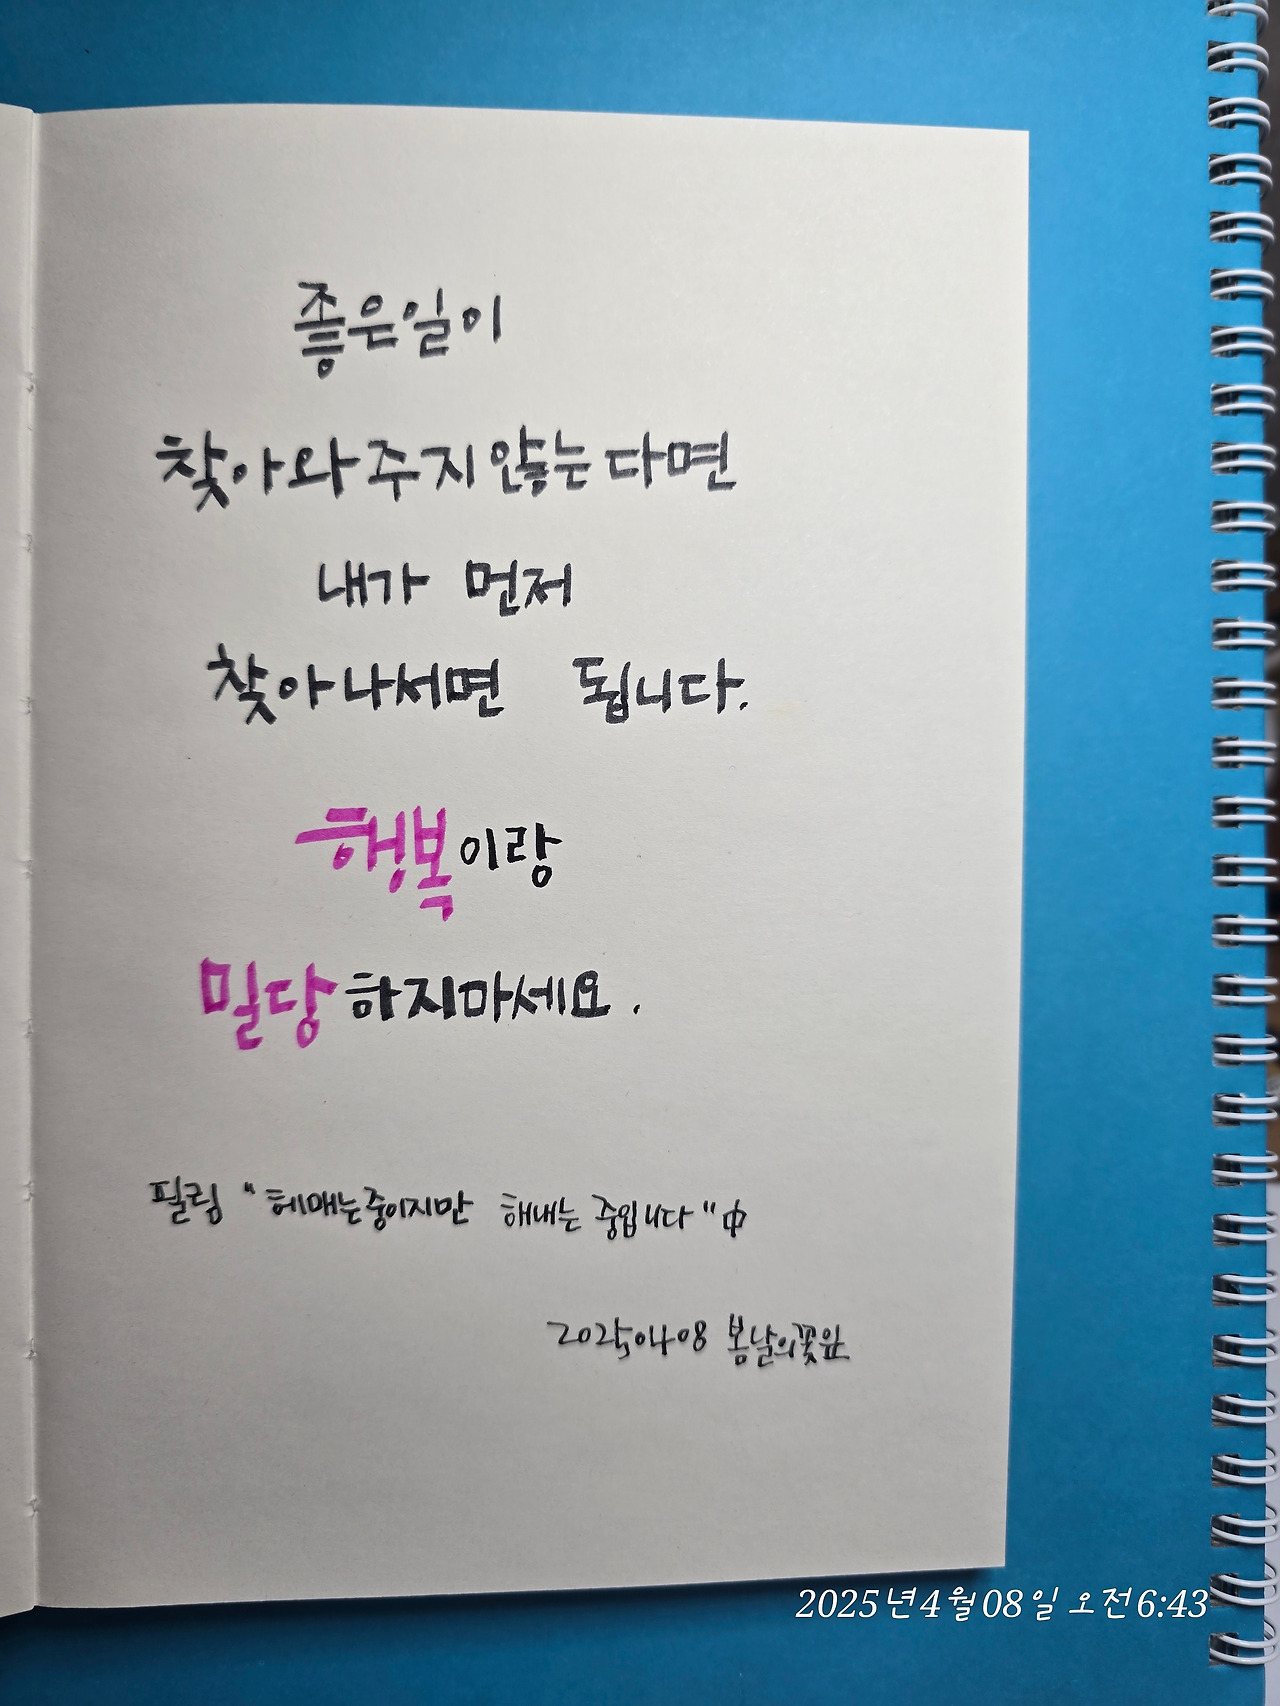 좋은일이
찾아와주지않는다면
내가 먼저
찾아나서면 됩니다.
행복이랑
밀당하지마세요.
필림 "헤매는중이지만 해내는 중입니다" 中
20250408 봄날의꽃잎
2025년4월08일 오전6:43